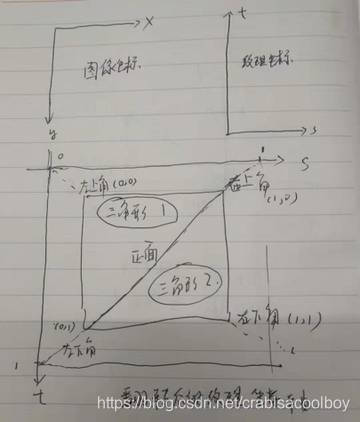 x
图像坐标
y
t
纹理坐标
s
0
1
s
左上角(0,0)
右上角
(1,0)
三角形 1
正面
三角形 2
(0,1)
左下角
右下角 (1,1)
1
t
https://blog.csdn.net/crabisacoolboy